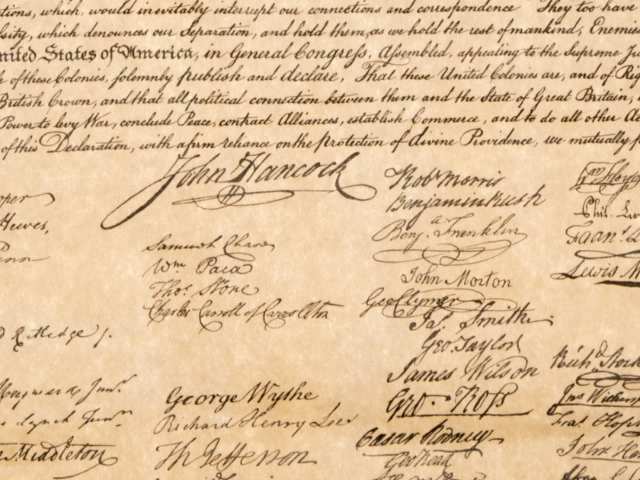 tions, which, would inevitably interrupt our connections and correspondence They too have
sity, which denounces our Separation, and hold them, as we hold the rest of mankind, Enemies
nited States of America, in General Congress, Assembled, appealing to the Supreme Ju
of these Colonies, solemnly publish and declare, That these United Colonies are, and of Rig
British Crown, and that all political connection between them and the State of Great Britain,
Power to levy War, conclude Peace, contract Alliances, establish Commerce, and to do all other Ac
of this Declaration, with a firm reliance on the protection of divine Providence, we mutually p
John Hancock
Robt Morris
Benjamin Rush
Benja. Franklin
John Morton
Geo Clymer
Jas. Smith
Geo. Taylor
James Wilson
Geo. Ross
Caesar Rodney
Geo Read
ooper
Hewes,
enn
Samuel Chase
Wm. Paca
Thos. Stone
Charles Carroll of Carrollton
d Rutledge /.
Heyward Junr.
Lynch Junr.
Middleton
George Wythe
Richard Henry Lee
Th Jefferson
Wm Floyd
Phil. Li
Frans. L
Lewis M
Richd. Stock
Jno Withersp
Fras. Hopk
John Ha
Abra C